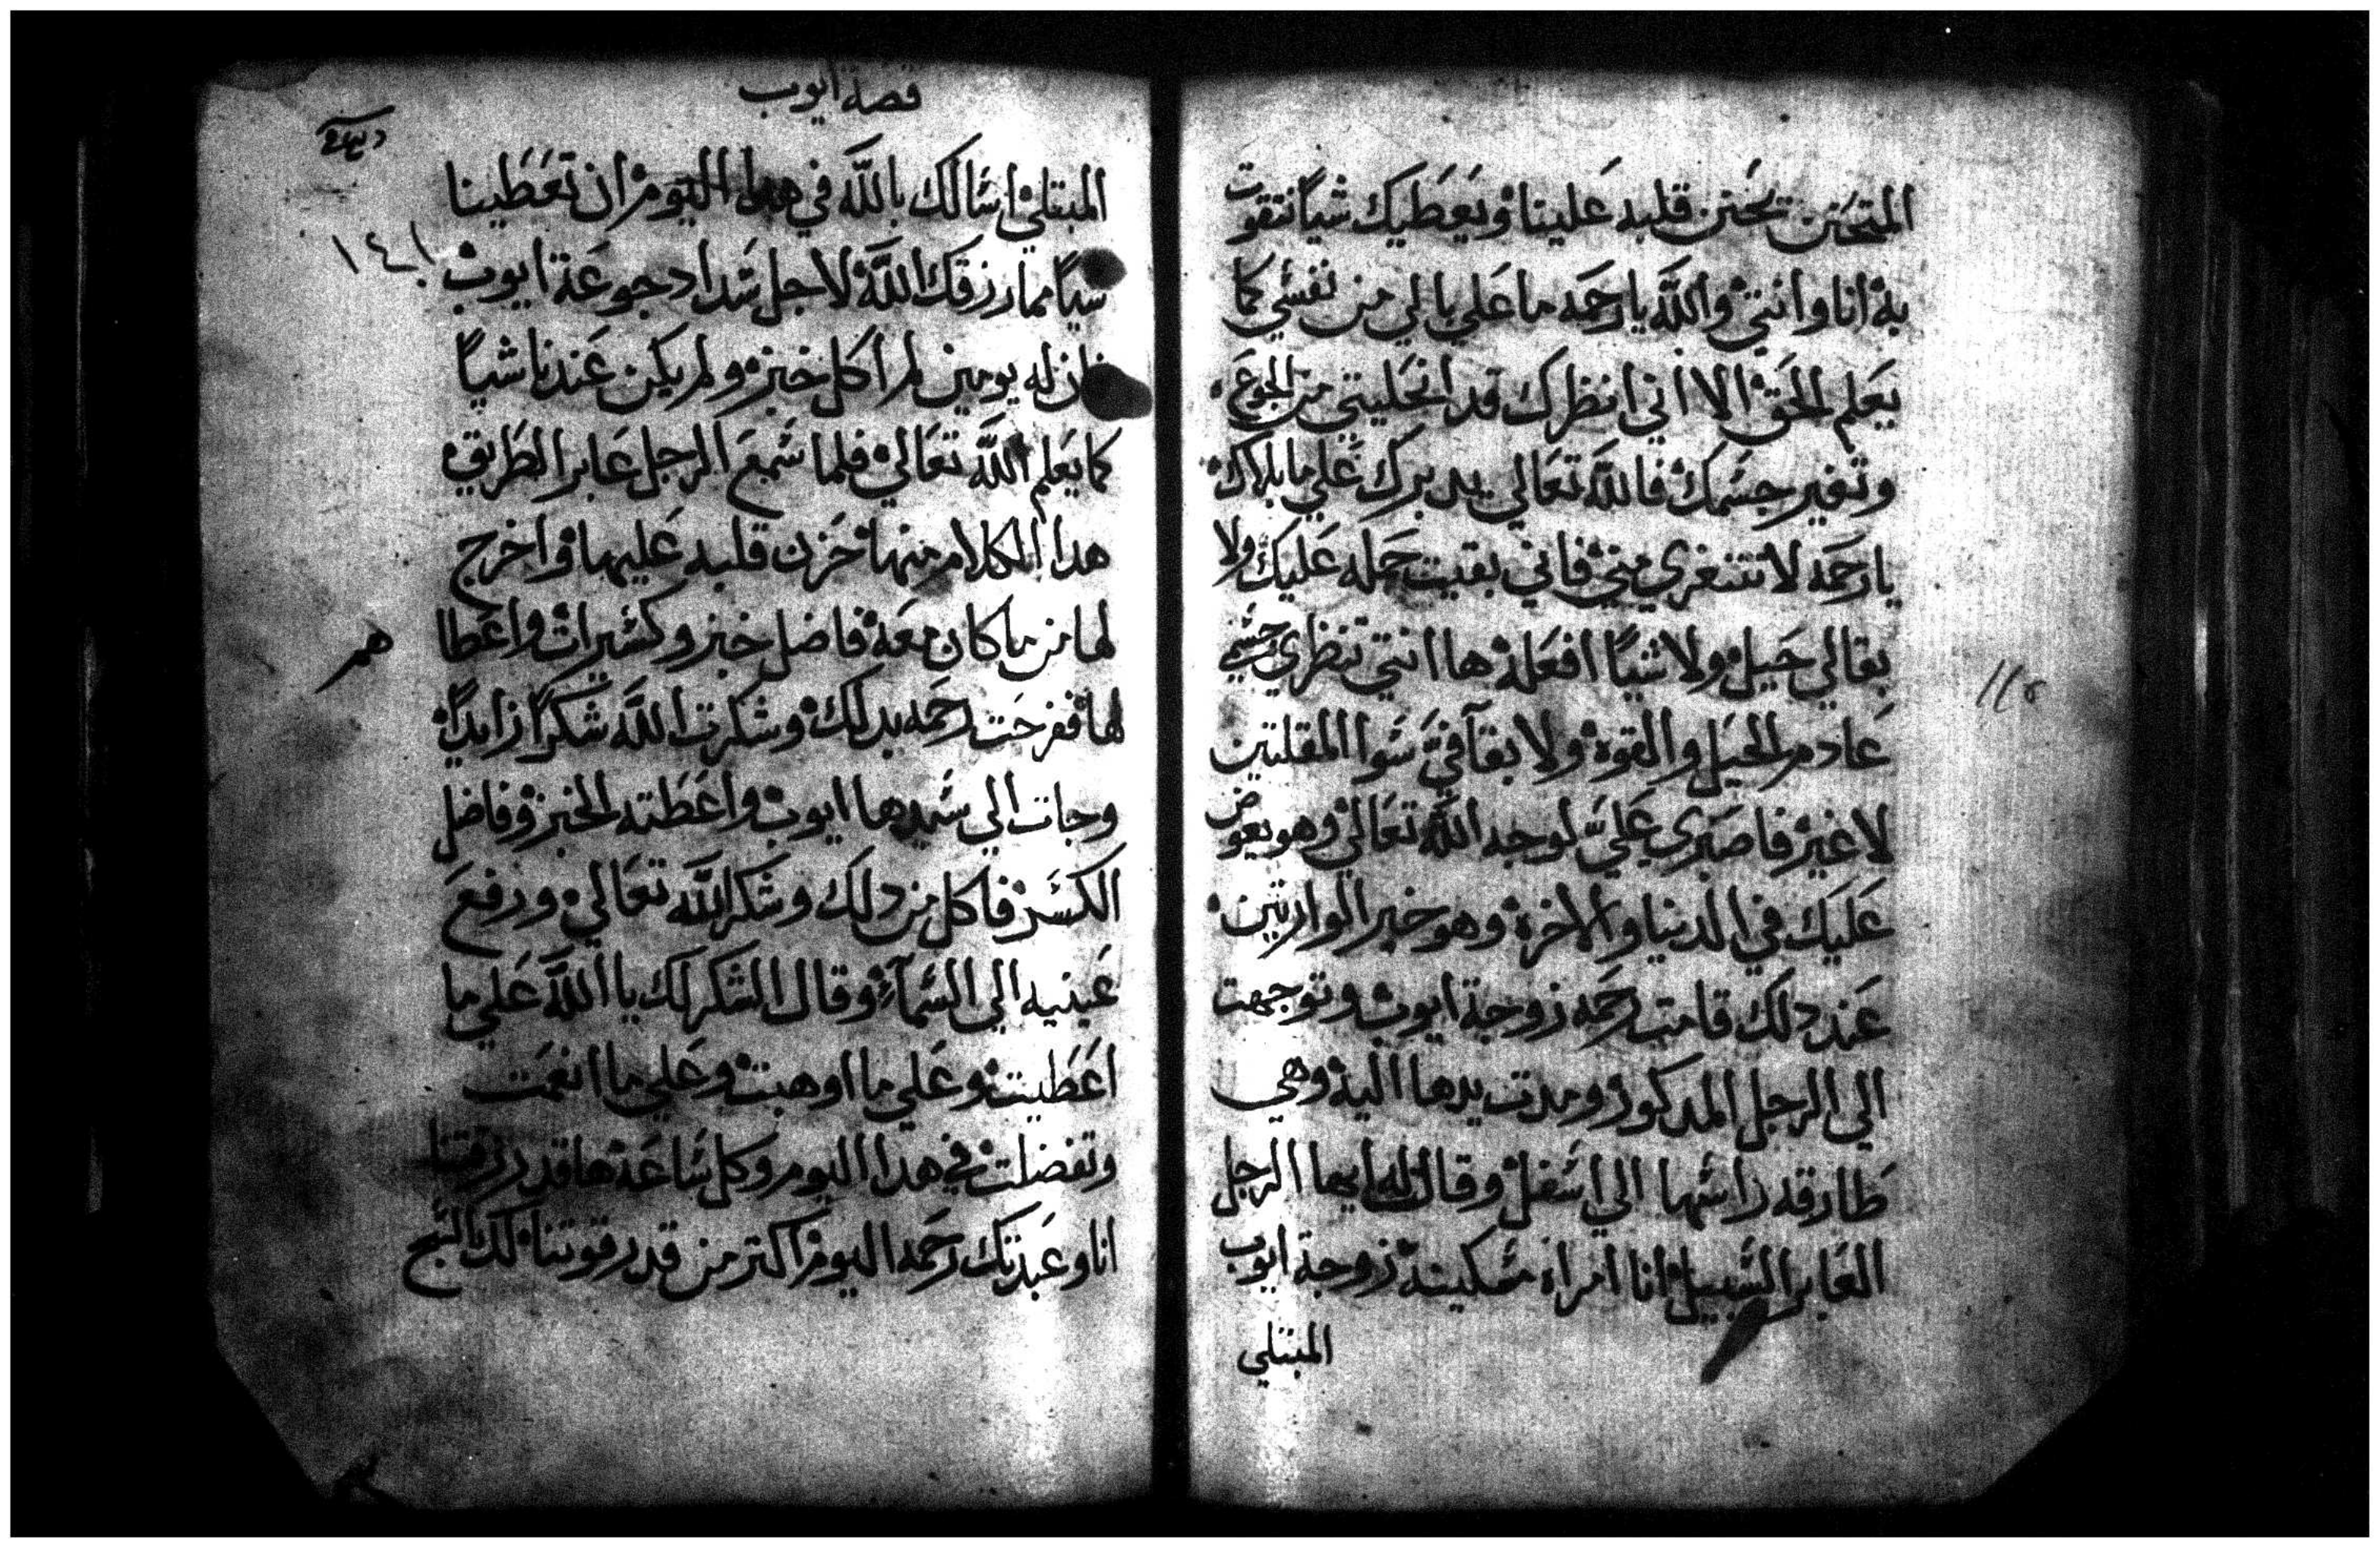 المتحنن يحنن قلبه علينا ويعطيك شيا نتقوت
به انا وانتي والله يا رحمه ما علي بالي من نفسي كما
يعلم الحق الا اني انظرك قد انحليتي من الجوع
وتغير جسمك فالله تعالي يدبرك علي ما بلاك
يا رحمه لا تتنغري مني فاني بقيت حمله عليك ولا
بقالي حيل ولا شيا افعله ها انتي تنظري جسمي
عادم الحيل والقوه ولا بقا في سوا المقلتين
لا غير فاصبري علي لوجه الله تعالي وهو يعوض
عليك في الدنيا والاخره وهو خير الوارتين
عند دلك قامت رحمه زوجة ايوب وتوجهت
الي الرجل المدكور ومدت يدها اليه وهي
طارقه راسها الي اسفل وقالت له ايها الرجل
العابر السبيل انا امراه مسكينه زوجة ايوب
المبتلي
قصة ايوب
المبتلي اسالك بالله في هدا اليوم ان تعطينا
شيا مما رزقك الله لاجل شداد جوعة ايوب
فان له يومين لم اكل خبز ولم يكن عندنا شيا
كما يعلم الله تعالي فلما سمع الرجل عابر الطريق
هدا الكلام منها حزن قلبه عليها واخرج
لها من ما كان معه فاضل خبز وكسيرات واعطا
هم
لها ففرحت رحمه بدلك وشكرت الله شكرا زايدا
وجات الي سيدها ايوب واعطته الخبز وفاضل
الكسر فاكل من دلك وشكر الله تعالي ورفع
عينيه الي السمآء وقال الشكر لك يا الله علي ما
اعطيت وعلي ما اوهبت وعلي ما انعمت
وتفضلت في هدا اليوم وكل ساعة ها قد رزقتنا
انا وعبدتك رحمه اليوم اكتر من قدر قوتنا لك السبح